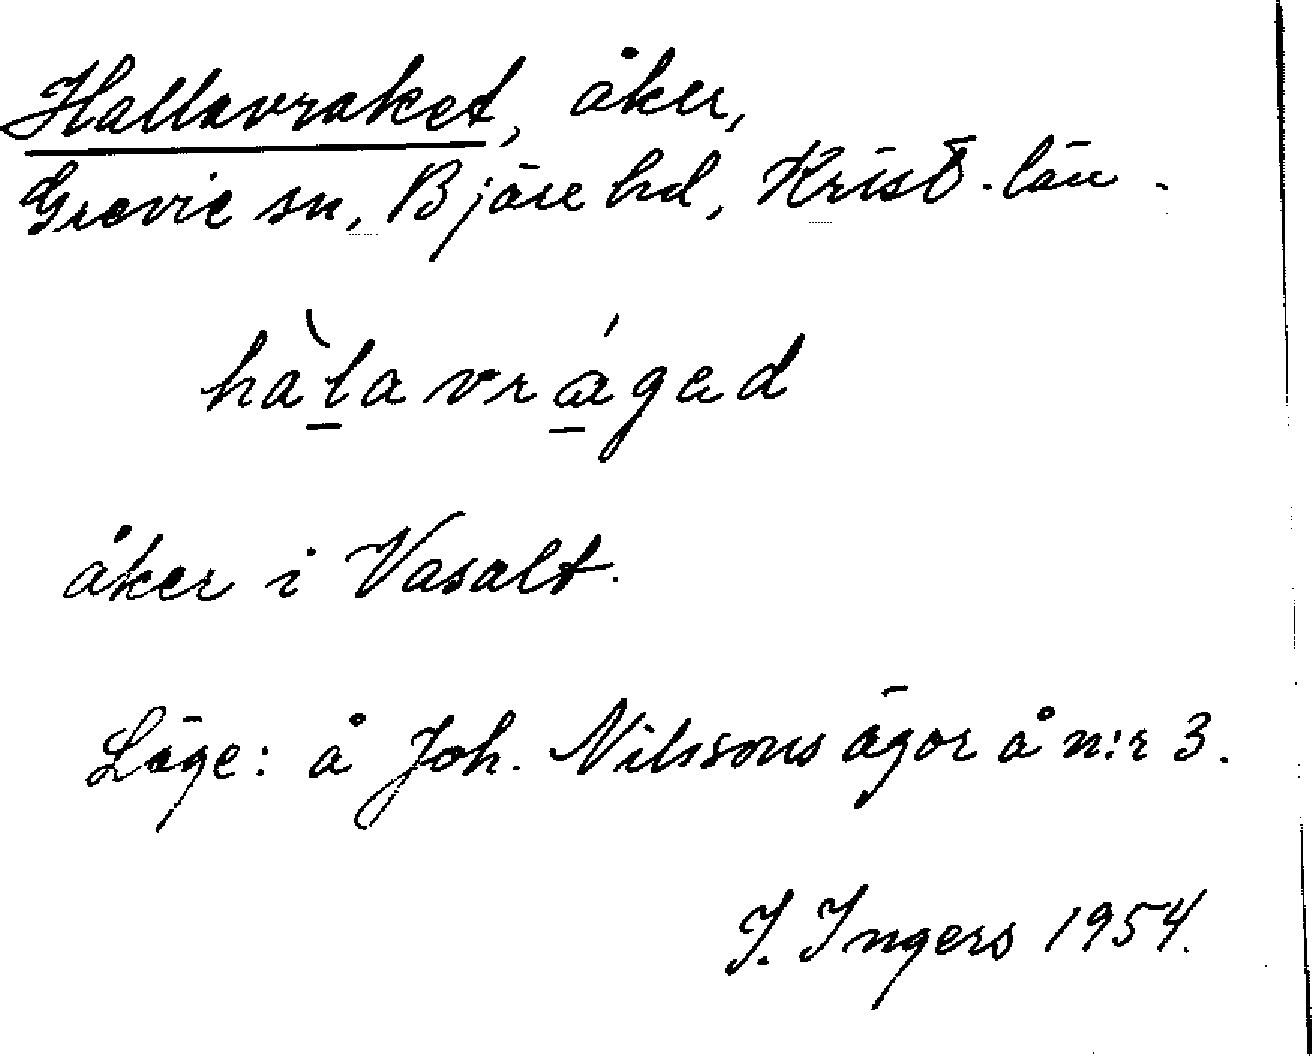 Hallavraket, åker,
Grevie sn, Bjäre hd, Krist. län.
hàl̠avrá̠gad
åker i Vasalt.
Läge: å Joh. Nilssons ägor å n:r 3.
I. Ingers 1954.